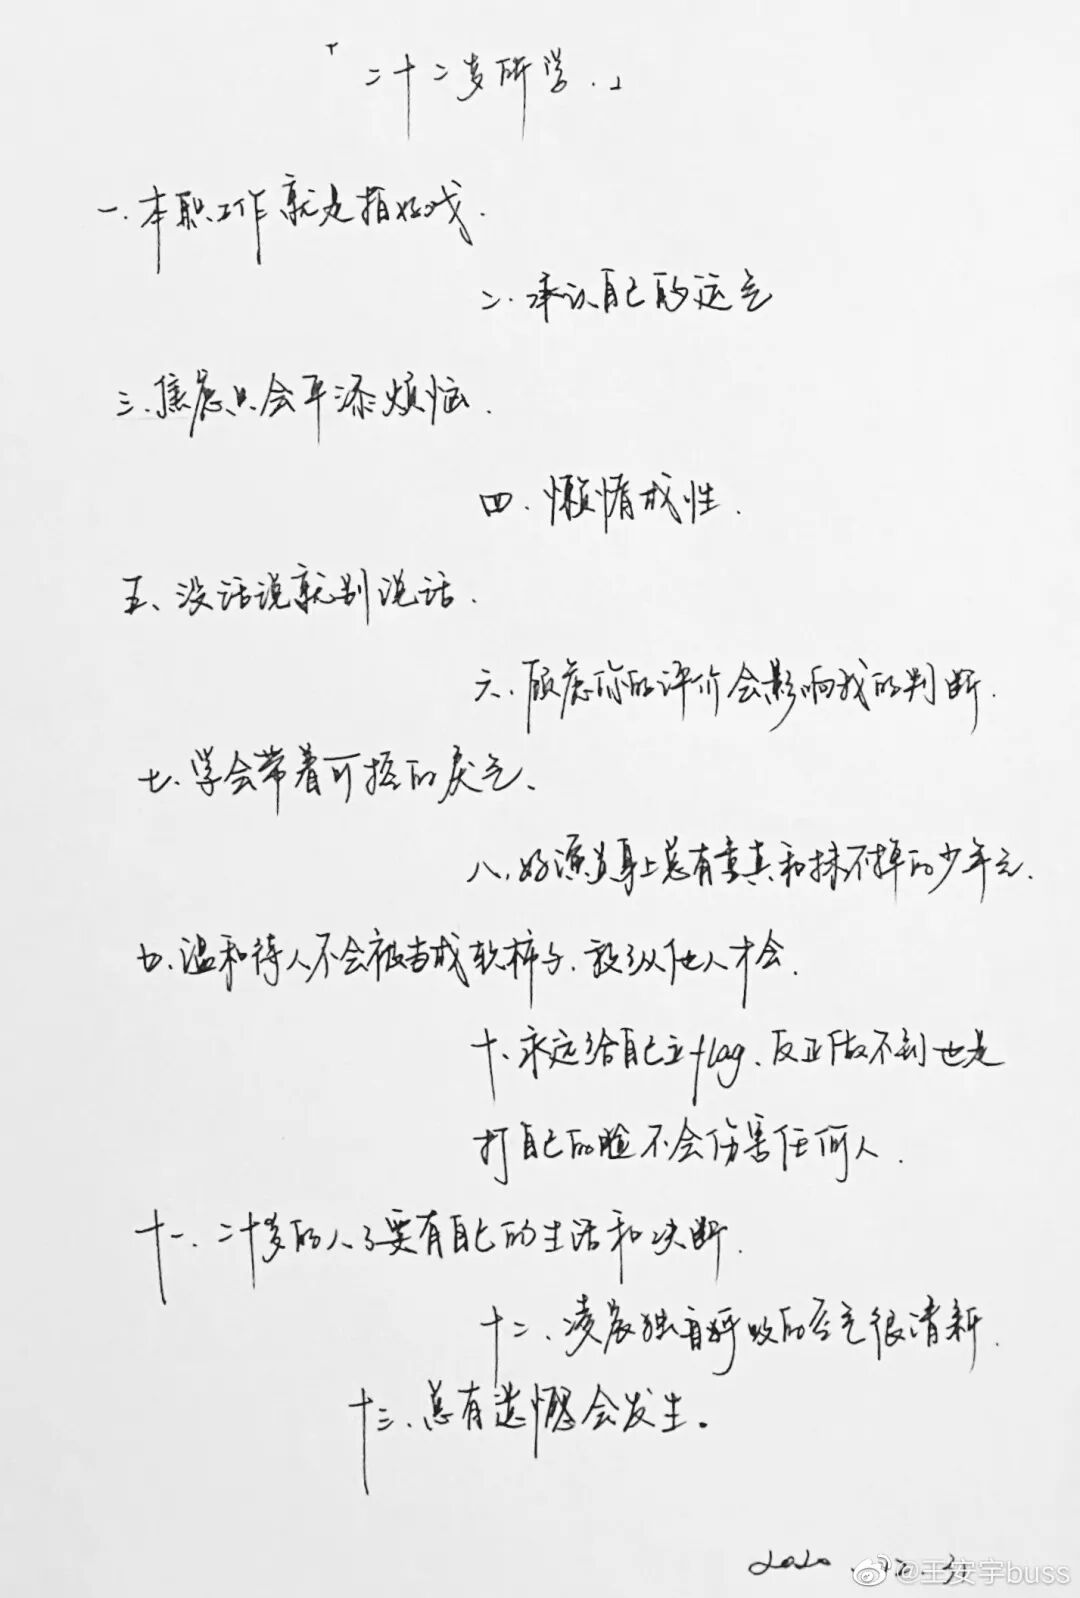 「二十二岁所学.」
一.本职工作就是拍好戏.
二.承认自己的运气
三.焦虑只会平添烦恼.
四.懒惰成性.
五、没话说就别说话.
六.顾虑你的评价会影响我的判断.
七.学会带着可控的戾气、
八.好演员身上总有童真和抹不掉的少年气.
九.温和待人不会被当成软柿子.放纵他人才会.
十、永远给自己立flag、反正做不到也是
打自己的脸不会伤害任何人.
十一.二十岁的人了要有自己的生活和决断.
十二、凌晨独自呼吸的空气很清新.
十三.总有遗憾会发生。
2020.12.31
@王安宇buss